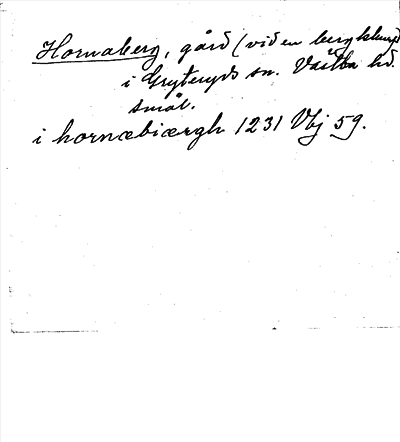 Hornaberg, gård (vid en bergklump)
i Gryteryds sn. Västbo hd.
smål.
i hornæbiærgh 1231 Vbj 59.